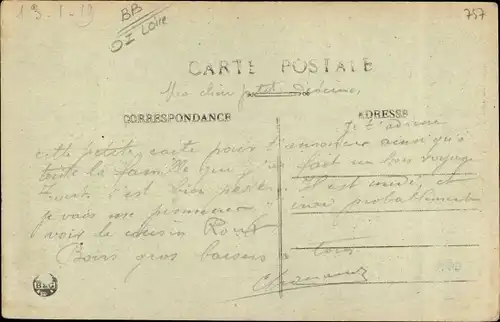 13-1-19
BB
OI Loire
757
CARTE POSTALE
Ma chère petite
CORRESPONDANCE
ADRESSE
Je t'adresse
cette petite carte pour t'annoncer ainsi qu'à
toute la famille que j'ai fait un bon voyage
c'est bien Il est midi et
je vais me promener probablement
voir le cousin Roux
Bons gros baisers à tous
B&G